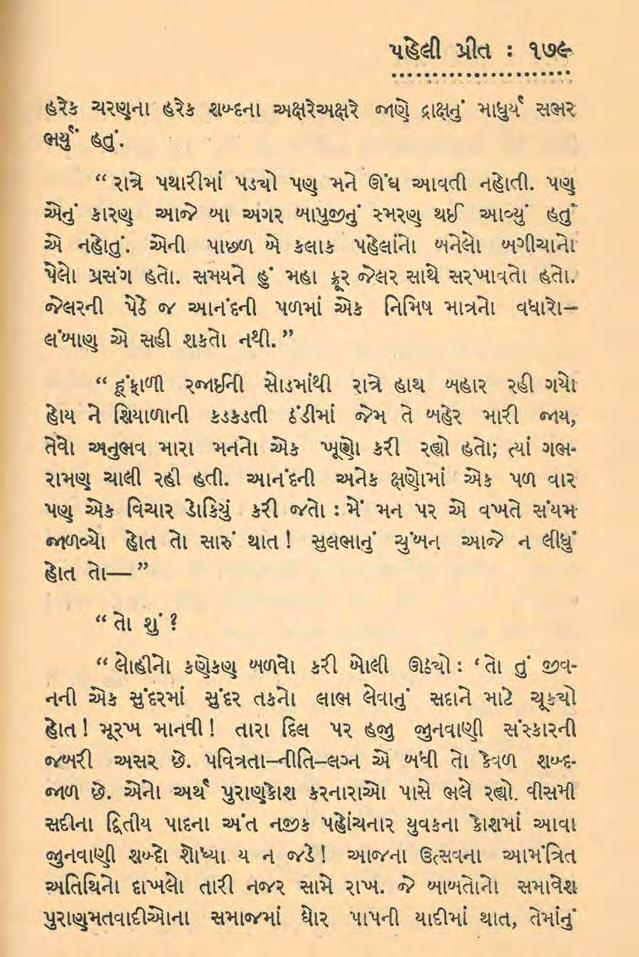 પહેલી પ્રીત : ૧૭૯
હરેક ચરણના હરેક શબ્દના અક્ષરેઅક્ષરે જાણે દ્રાક્ષનું માધુર્ય સભર
ભર્યું હતું.
“ રાત્રે પથારીમાં પડ્યો પણ મને ઊંઘ આવતી નહોતી. પણ
એનું કારણ આજે બા અગર બાપુજીનું સ્મરણ થઈ આવ્યું હતું
એ નહોતું. એની પાછળ એ કલાક પહેલાંનો બનેલો બગીચાનો
પેલો પ્રસંગ હતો. સમયને હું મહા ક્રૂર જેલર સાથે સરખાવતો હતો.
જેલરની પેઠે જ આનંદની પળમાં એક નિમિષ માત્રનો વધારો—
લંબાણ એ સહી શકતો નથી. ”
“ હૂંફાળી રજાઈની સોડમાંથી રાત્રે હાથ બહાર રહી ગયો
હોય ને શિયાળાની કડકડતી ઠંડીમાં જેમ તે બહેર મારી જાય,
તેવો અનુભવ મારા મનનો એક ખૂણો કરી રહ્યો હતો; ત્યાં ગભ-
રામણ ચાલી રહી હતી. આનંદની અનેક ક્ષણોમાં એક પળ વાર
પણ એક વિચાર ડોકિયું કરી જતો : મેં મન પર એ વખતે સંયમ
જાળવ્યો હોત તો સારું થાત ! સુલભાનું ચુંબન આજે ન લીધું
હોત તો— ”
“ તો શું ?
“ લોહીનો કણેકણ બળવો કરી બોલી ઊઠ્યો : ‘ તો તું જીવ-
નની એક સુંદરમાં સુંદર તકનો લાભ લેવાનું સદાને માટે ચૂક્યો
હોત ! મૂરખ માનવી ! તારા દિલ પર હજી જુનવાણી સંસ્કારની
જબરી અસર છે. પવિત્રતા—નીતિ—લગ્ન એ બધી તો કેવળ શબ્દ-
જાળ છે. એનો અર્થ પુરાણકોશ કરનારાઓ પાસે ભલે રહ્યો. વીસમી
સદીના દ્વિતીય પાદના અંત નજીક પહોંચનાર યુવકના કોશમાં આવા
જુનવાણી શબ્દો શોધ્યા ય ન જડે ! આજના ઉત્સવના આમંત્રિત
અતિથિનો દાખલો તારી નજર સામે રાખ. જે બાબતોનો સમાવેશ
પુરાણમતવાદીઓના સમાજમાં ઘોર પાપની યાદીમાં થાત, તેમાંનું